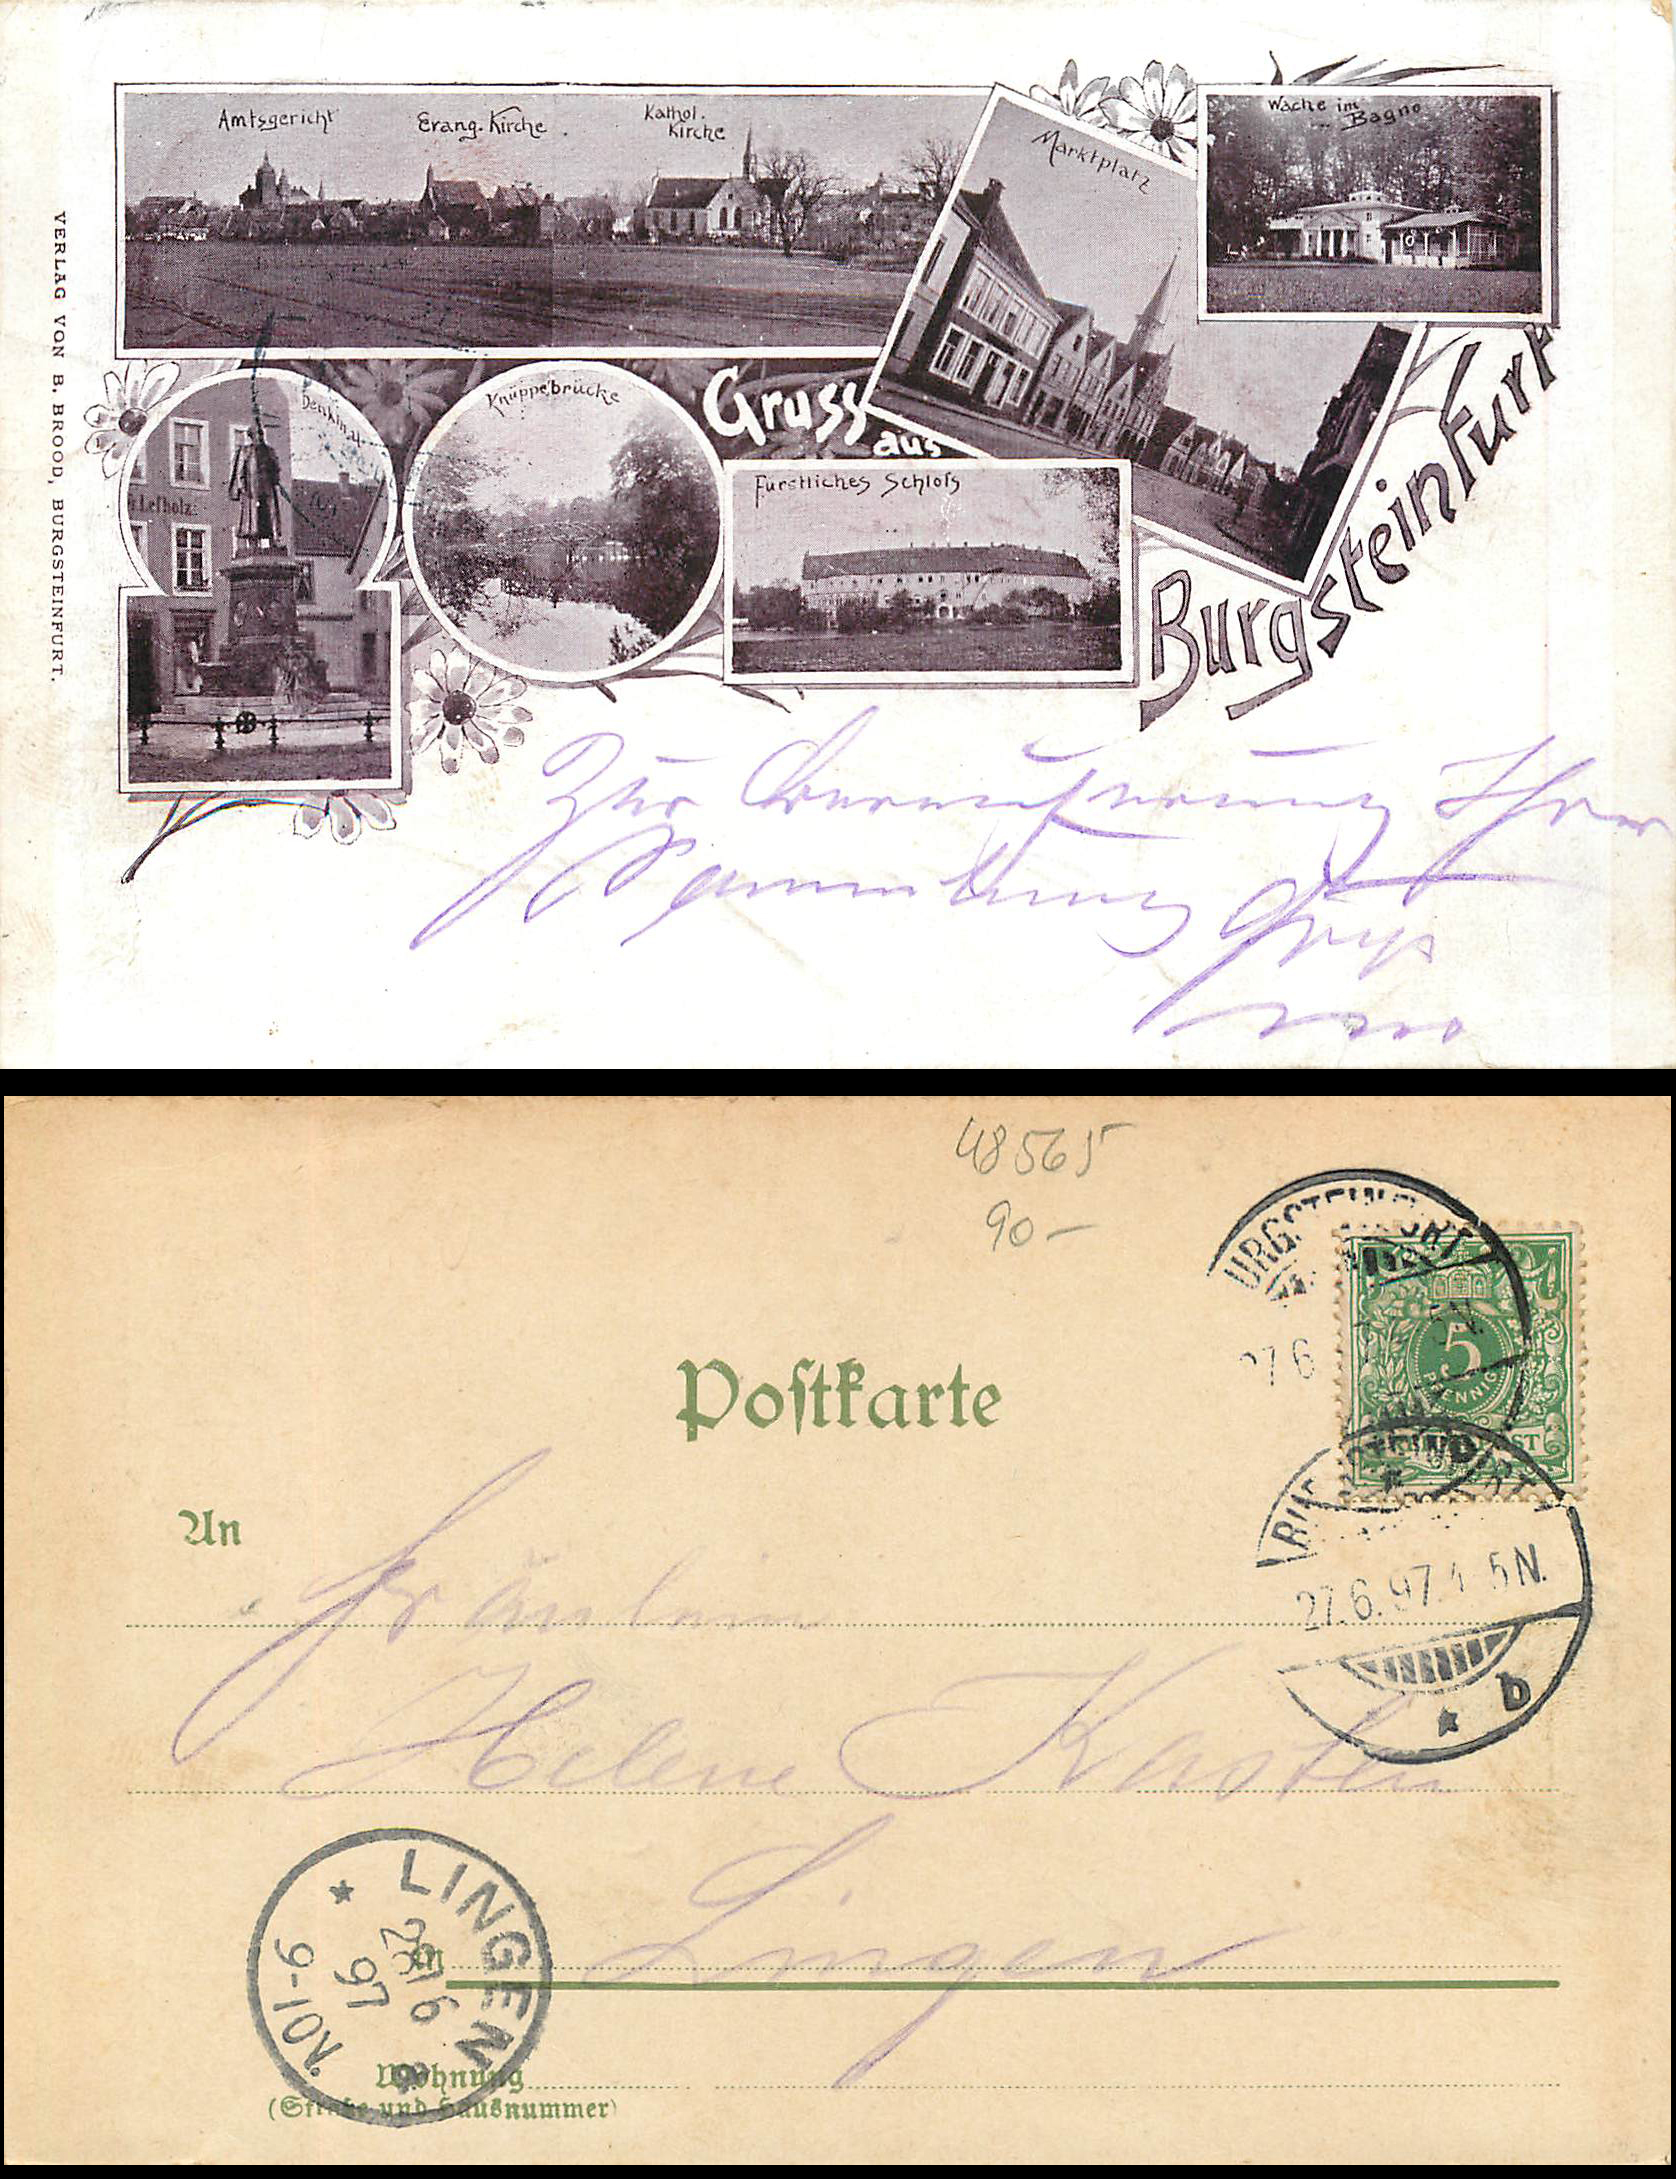 Amtsgericht
Evang. Kirche.
Kathol.
Kirche
Marktplatz
Wache im
Bagno
VERLAG VON B. BROOD, BURGSTEINFURT.
Denkmal
Lefholz
Knüppelbrücke
Gruss
aus
Burgsteinfurt
Fürstliches Schloſs
Zur
Ihrer
Sammlung
48565
90-
Poſtkarte
URGSTEINFURT
27 6
5N.
5
PFENNIG
REICHSPOST
An
Fräulein
27.6.97. 4 5N.
* b
Helene Kasten
LINGEN
28 6
97
9-10V.
in
Lingen
Wohnung
(Straße und Hausnummer)